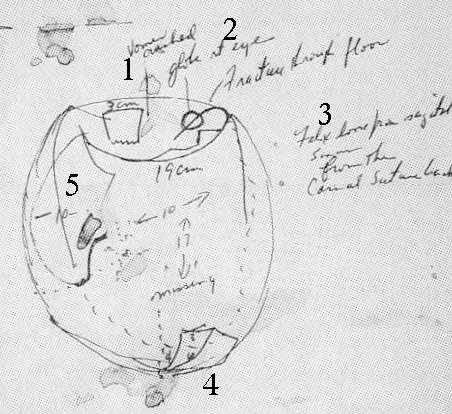 2
vomer crushed
1
globe rt eye
Fracture through floor
3cm
3
Falx loose from sagittal
sinus
from the
Coronal suture back
19 cm
5
10
10
17
missing
4